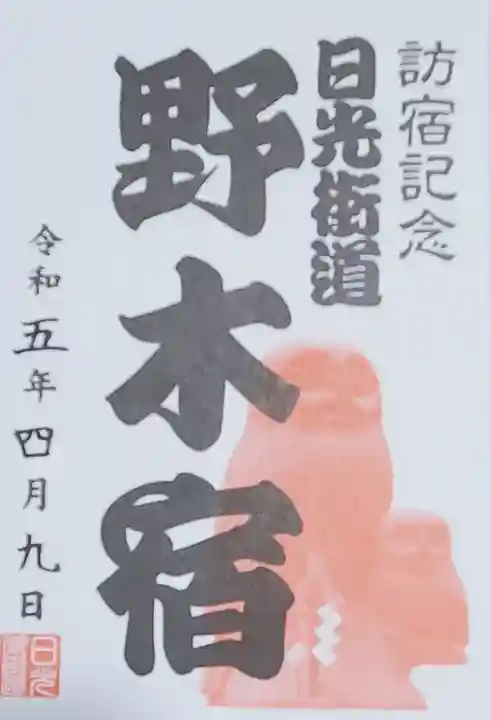 訪宿記念
日光街道
野木宿
令和五年四月九日
日光